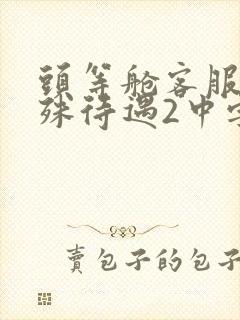 頭等舱客服
殊待遇2中字
賣包子的包子